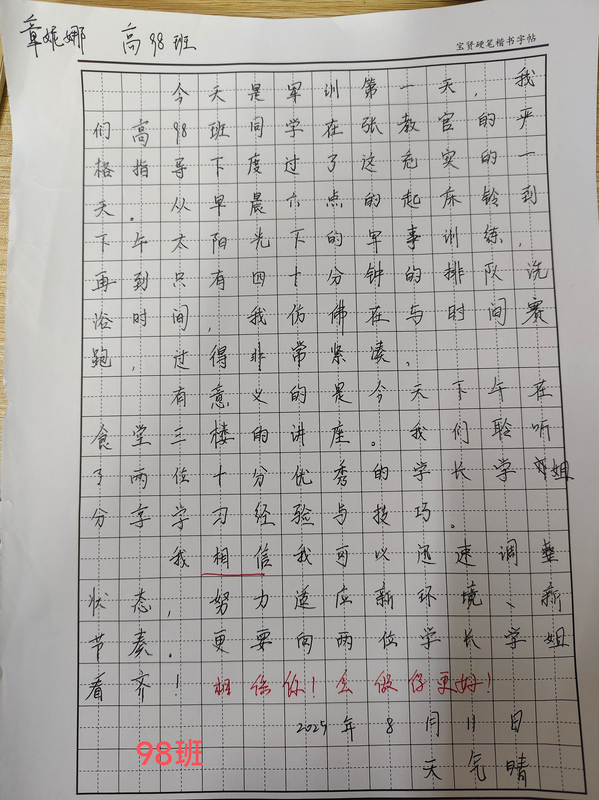 章妮娜 高98班
宝贤硬笔楷书字帖
今天是军训第一天,我
们高98班同学在张教官的严
格指导下度过了这充实的一
天。从早晨六点的起床铃到
下午太阳光下的军事训练,
再到只有四十分钟的排队洗
浴时间,我仿佛在与时间赛
跑,过得非常紧凑。
有意义的是今天下午在
食堂三楼的讲座。我们聆听
了两位十分优秀的学长学姐
分享学习经验与技巧。
我相信我可以迅速调整
状态,努力适应新环境、新
节奏。更要向两位学长学姐
看齐!相信你!会做得更好!
2025年8月11日
98班
天气晴